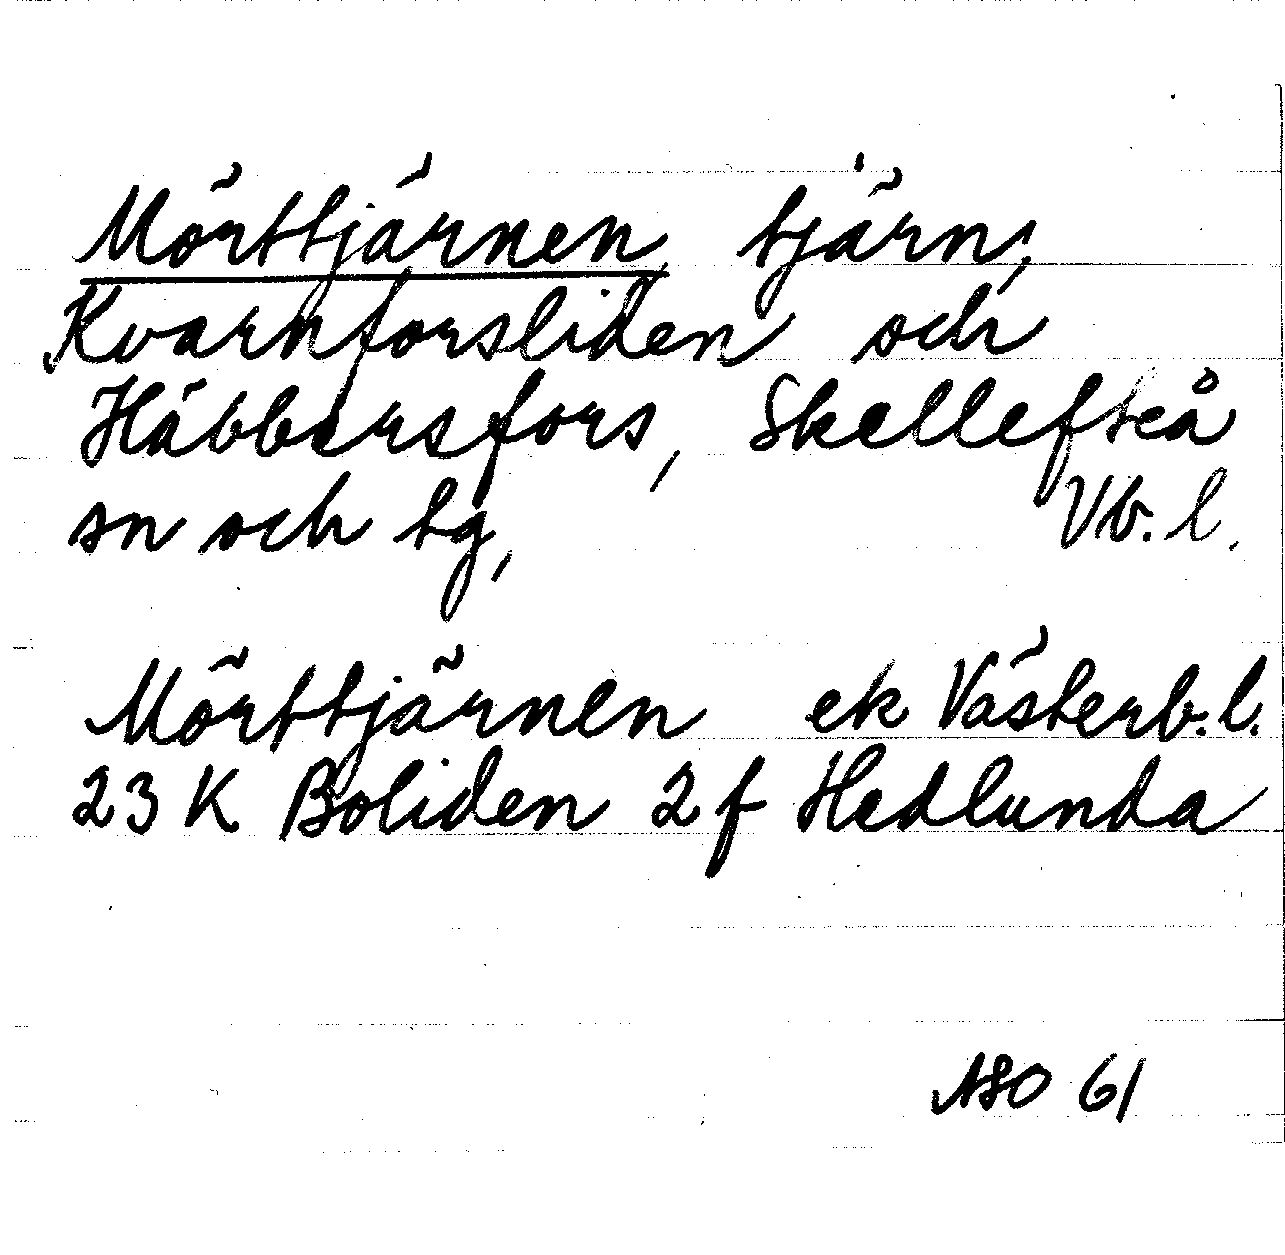 Mörttjärnen, tjärn,
Kvarnforsliden och
Häbbersfors, Skellefteå
sn och tg, Vb. l.
Mörttjärnen ek Västerb. l.
23 K Boliden 2 f Hedlunda
ASO 61